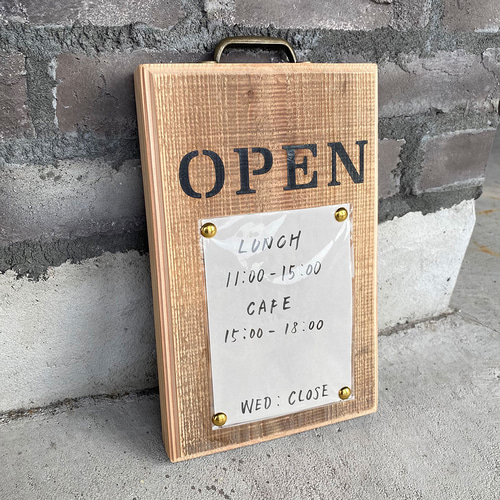 OPEN
LUNCH
11:00-15:00
CAFE
15:00-18:00
WED: CLOSE